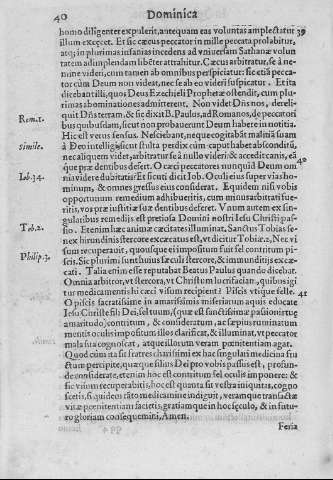 40
Dominica
homo diligenter expulerit, antequam eas voluntas amplectatur
39
illum exęcet. At sic cæcus peccator in mille peccata prolabitur,
atq; in plurimas insanias incedens ad vniuersam Sathanæ volun
tatem adimplendam libẽter attrahitur. Cæcus arbitratur, se à ne
mine videri, cum tamen ab omnibus perspiciatur: sic etiã pecca-
tor cùm Deum non videat, nec se ab eo videri suspicatur. Et ita
dicebant illi, quos Deus Ezechieli Prophetæ ostendit, cum plu
rimas abominationes admitterent. Non videt Dñs nos, dereli-
quit Dñs terram. & sic dixit B. Paulus, ad Romanos, de peccatori
Rom. 1.
bus quibusdam, sicut non probauerunt Deum habere in notitia.
Hic est verus sensus. Nesciebant, neque cogitabãt malitiã suam
Simile.
à Deo intelligi; sicut stulta perdix cùm caput habet absconditũ,
nec aliquem videt, arbitratur se à nullo videri: & accedit cani, eã
que præ dentibus defert. O cæci peccatores nunquid Deum om
40
Iob. 34.
nia videre dubitatis? Et scuti dicit Iob. Oculi eius super vias ho-
minum, & omnes gressus eius considerat. Equidem nisi vobis
opportunum remedium adhibueritis, cum minus arbitati fue-
ritis, vos præ iustitiæ suæ dentibus deferet. Vnum autem ex sin-
gularibus remedijs est pretiosa Domini nostri Iesu Christi pas-
Tob. 2.
sio. Etenim hæc animæ cæcitates illuminat. Sanctus Tobias se-
nex hirundinis stercore excæcatus est, vt dicitur Tobiæ 2. Nec vi
sum recuperauit, quousque ei impositum fuit fel contritum pi-
Philip. 3.
scis. Sic plurimi sunt huius sæculi stercore, & immunditijs excæ-
cati. Talia enim esse reputabat Beatus Paulus quando dicebat.
Omnia arbitror, vt stercora, vt Christum lucrifaciam, quibus igi
tur medicamentis hi cæci visum recipient? Piscis vtique felle.
41
O piscis sacratissime in amarissimis miseriarum aquis educate
Iesu Christe fili Dei, fel tuum, (quæ est sanctissimæ passionis tuę
amaritudo) contritum, & consideratum, ac sæpius ruminatum
mentis oculis impositum, illos clarificat, & illuminat, vt peccator
mala sua cognoscat, atque illorum veram pœnitentiam agat.
Quod cùm ita sit fratres charissimi ex hac singulari medicina fru
ctum percipite, quæque filius Dei pro vobis passus est, profun-
de considerate, etenim hoc est contritum fel oculis imponere: &
sic visum recuperabitis, hoc est quanta sit vestra iniquitas, cogno
scetis, & quidem tãto medicamine indiguit, veramque transactæ
vitæ pœnitentiam facietis, gratiamque in hoc sęculo, & in futu-
ro gloriam consequemini, Amen.
Feria